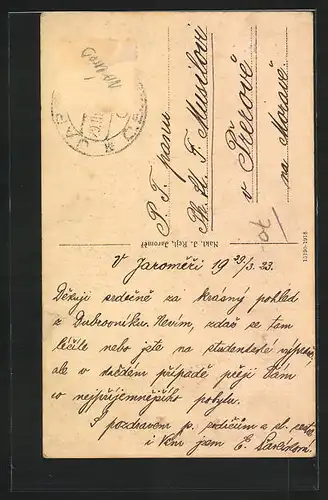 P. T. panu
Ph. St. F. Musilovi
v Přerově
na Moravě.
Nakl. J. Rejl, Jaroměř
V Jaroměři 19 29/3. 23.
Děkuji srdečně za krásný pohled
z Dubrovníku. Nevím, zdaž se tam
léčíte nebo jste na studentské
ale v každém případě přeji Vám
co nejpříjemnějšího pobytu.
S pozdravem p. rodičům a sl. sestře
i Vám jsem E.